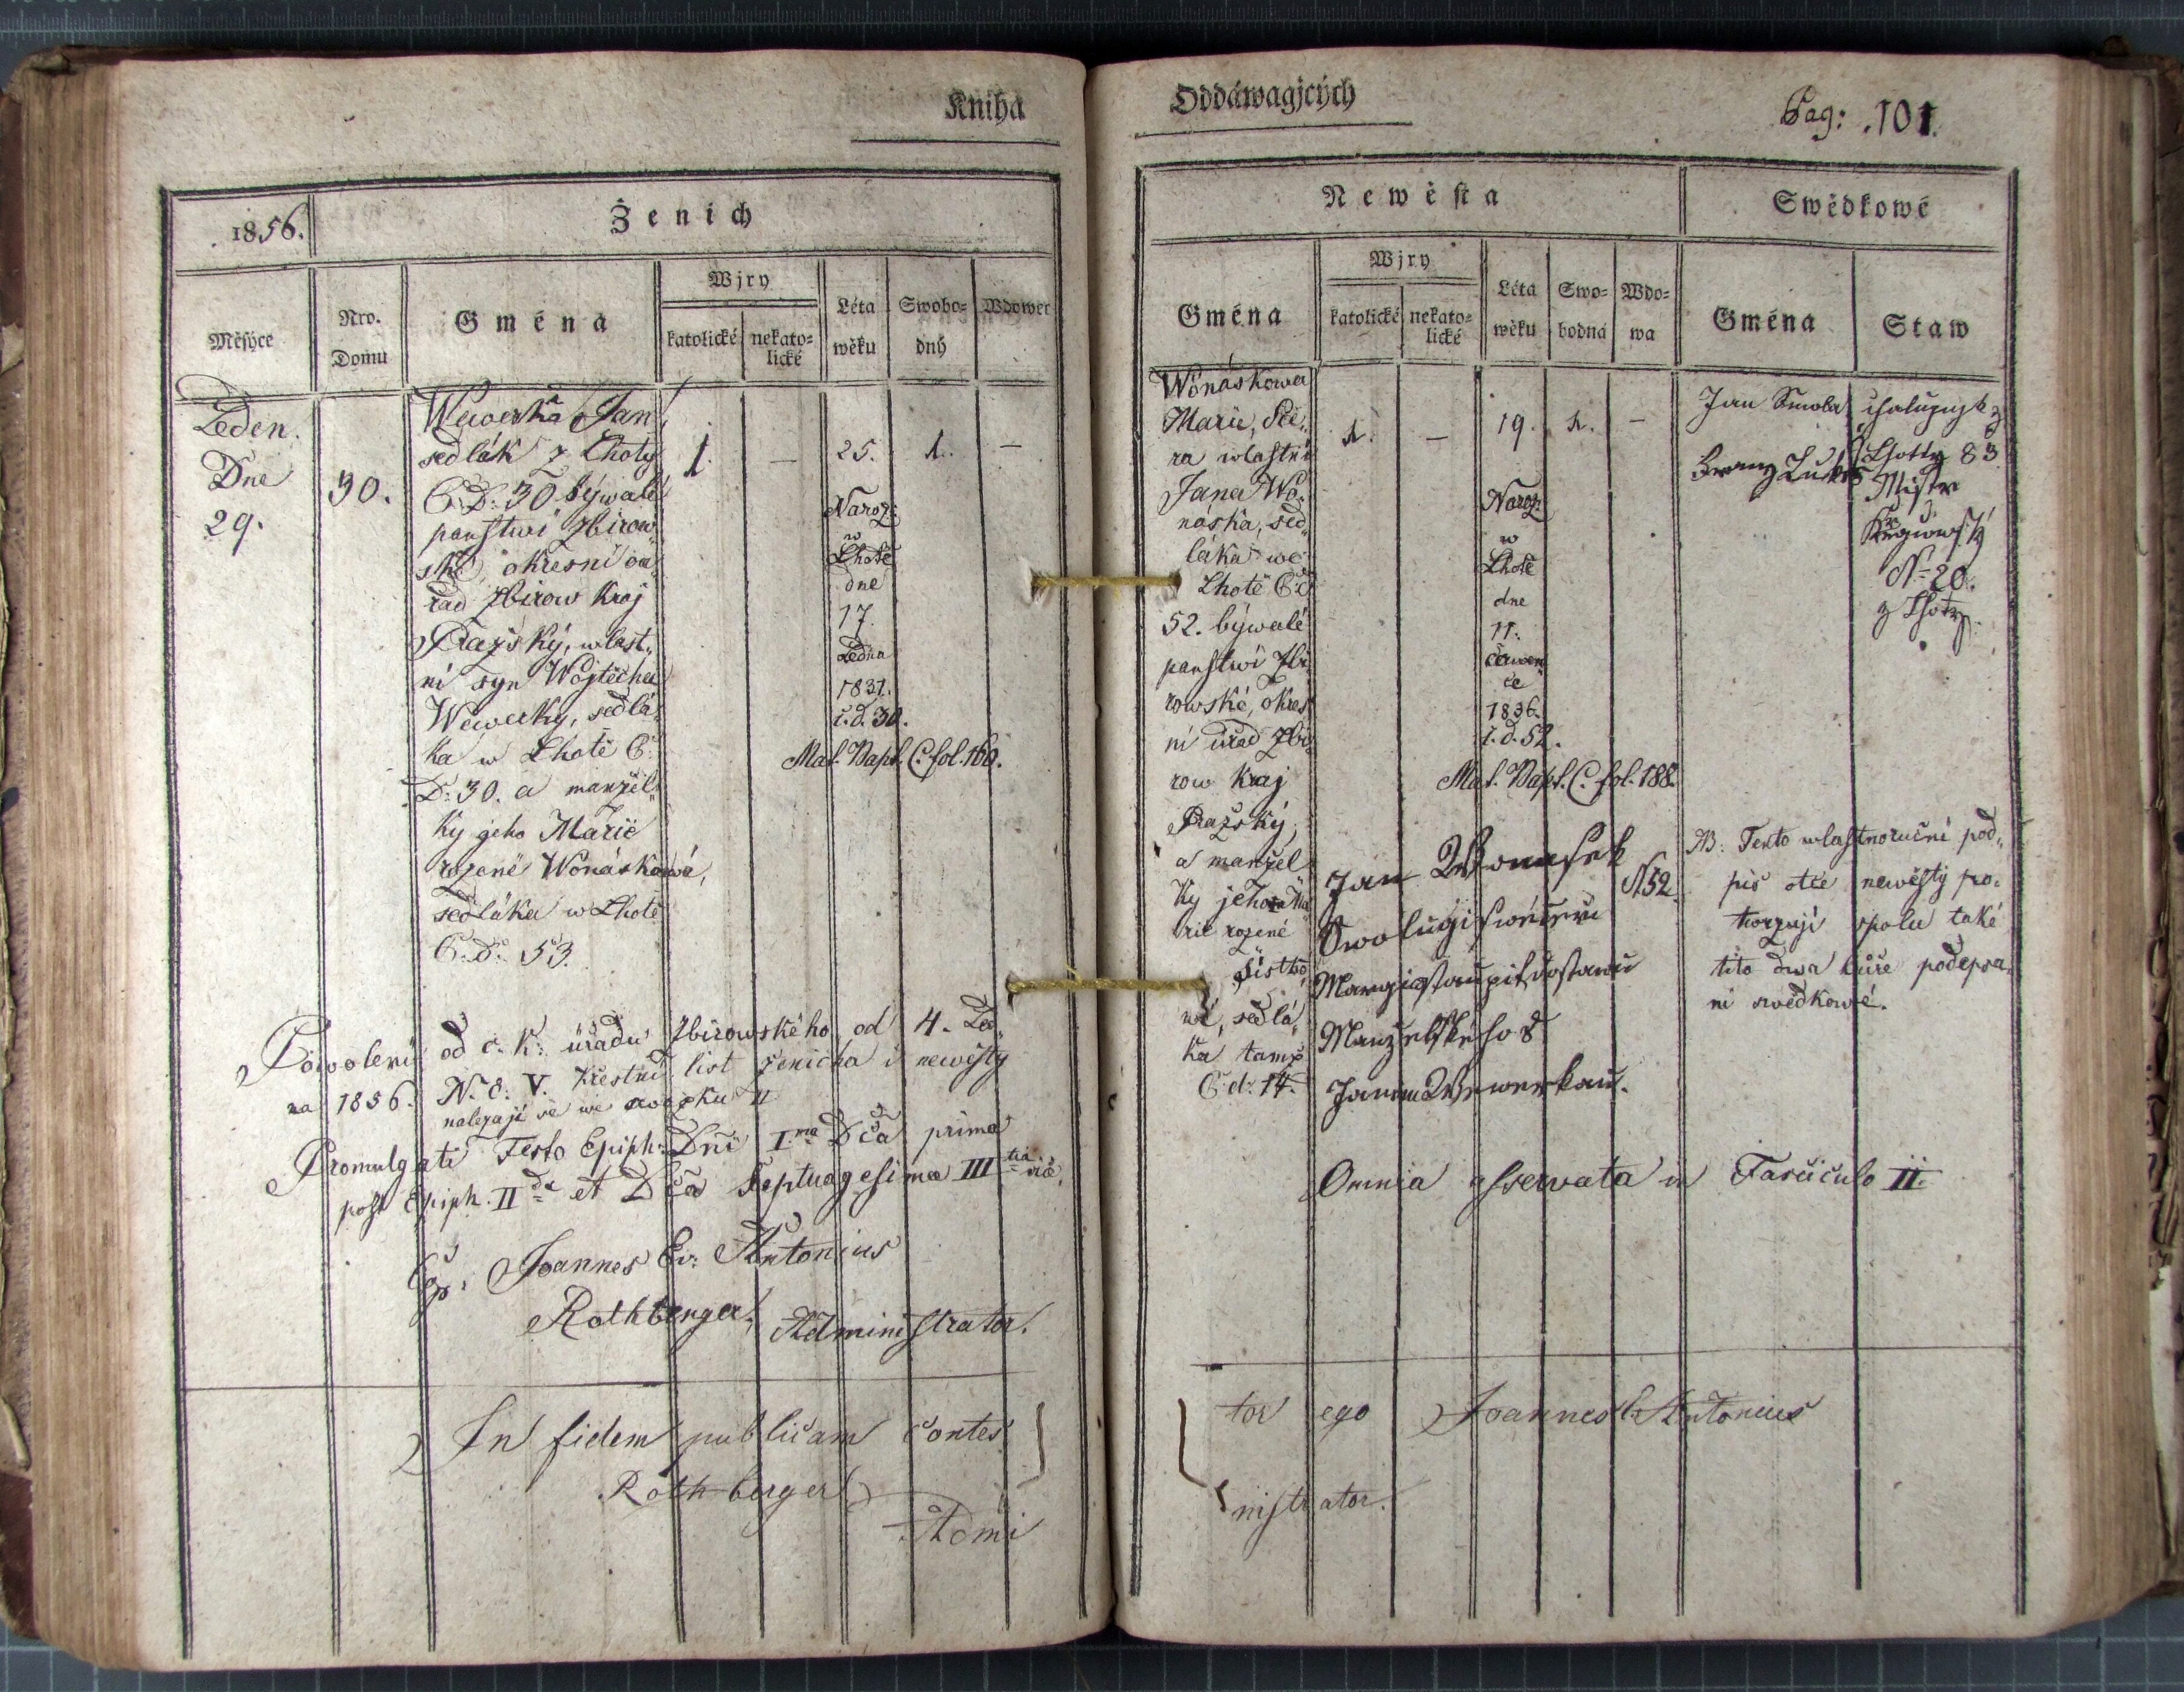 Kniha
1856.
Ženich
Měsýce
Nro. Domu
Gména
Wjry
katolické
nekato=
lické
Léta
wěku
Swobo=
dný
Wdowec
Leden.
Dne
29.
30.
Wewerka Jan,
sedlák z Lhoty
Č. D. 30 býwalé
panstwí Zbirow„
ské, okresní ou„
řad Zbirow Kraj
Pražský, wlast„
ní syn Wojtěcha
Wewerky, sedlá„
ka w Lhotě Č.
D. 30. a manžel„
ky geho Marie
rozené Wonáskowé,
sedláka w Lhotě
Č. D. 53.
1.
—
25.
1.
—
Naroz:
w
Lhotě
dne
17.
Ledna
1831.
č. d. 30.
Mat. Bapt. C. fol. 160.
Powolení od c. k. úřadu Zbirowského od 4. Led„
na 1856. N. e. V. Křestní list ženicha i newěsty
nalezají se we swazku II
Promulgati Festo Epiph: Dni I.ma Dca prima
post Epiph. II da et Dca Septuagesima III tia
Cop. Joannes Ev: Antonius
Rothberger, Administrator.
In fidem publicam contes
Rothberger
Admi
Oddáwagjcých
Pag: .101.
Newěsta
Swědkowé
Gména
Wjry
katolické
nekato=
lické
Léta
wěku
Swo=
bodná
Wdo=
wa
Gména
Staw
Wonáskowa
Marie, dce„
ra wlastní
Jana Wo„
náska, sed„
láka we
Lhotě Č. d
52. býwalé
panstwí Zbi„
rowské, okres„
ní úřad Zbi„
row Kraj
Pražský,
a manžel„
ky jeho Ma„
rie rozené
wé, sedlá„
ka tamž
Č. d. 14.
1.
—
19.
1.
—
Naroz:
w
Lhotě
dne
11.
červen„
ce
1836.
č. d. 52.
Mat. Bapt. C. fol. 188.
Jan Smola
chalupnjk z
Lhotty 83
Mistr
Kregčowský
N 20.
z Lhoty.
Jan Wonasek
N 52.
Swolugi
Manželského
Janem Wewerkau.
NB: Tento wlastnoruční pod„
pis otce newěsty po„
twrzují spolu také
tito dwa výše podepsa„
ní swědkowé.
Omnia asservata in Fasciculo II.
tor ego Joannes Ev Antonius
nistrator.